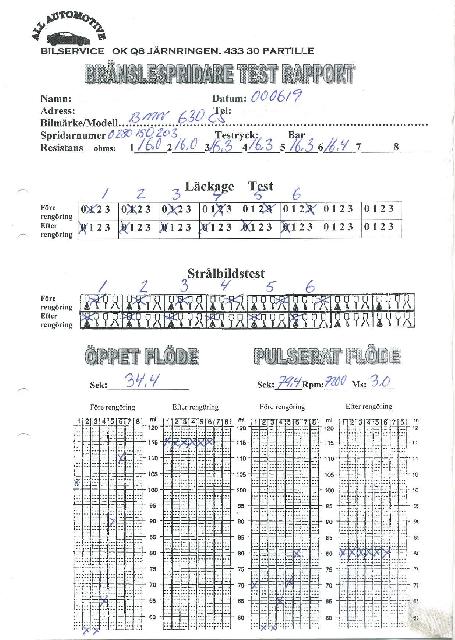 ALL AUTOMOTIVE
BILSERVICE OK Q8 JÄRNRINGEN. 433 30 PARTILLE
BRÄNSLESPRIDARE TEST RAPPORT
Namn: Datum: 000619
Adress: Tel:
Bilmärke/Modell BMW 630 CS
Spridarnumer 0280150203 Testryck: Bar
Resistans ohms: 1 16.0 2 16.0 3 16.3 4 16.3 5 16.3 6 16.4 7 8
Läckage Test
1 2 3 4 5 6
Före rengöring 0 1 2 3 0 1 2 3 0 1 2 3 0 1 2 3 0 1 2 3 0 1 2 3 0 1 2 3 0 1 2 3
Efter rengöring 0 1 2 3 0 1 2 3 0 1 2 3 0 1 2 3 0 1 2 3 0 1 2 3 0 1 2 3 0 1 2 3
Strålbildstest
1 2 3 4 5 6
Före rengöring
Efter rengöring
ÖPPET FLÖDE PULSERAT FLÖDE
Sek: 34.4 Sek: 79.4 Rpm: 7200 Ms: 3.0
Före rengöring Efter rengöring Före rengöring Efter rengöring
1 2 3 4 5 6 7 8 ml 1 2 3 4 5 6 7 8 ml 1 2 3 4 5 6 7 8 ml 1 2 3 4 5 6 7 8 ml